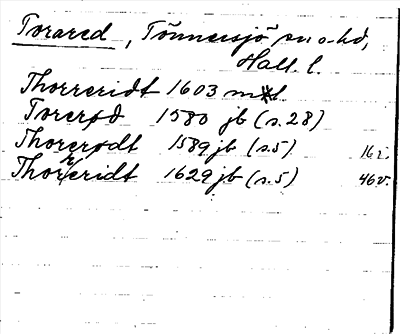 Torared, Tönnersjö sn o. hd,
Hall. l.
Thorreridt 1603 mtl
Torerød 1580 jb (s. 28)
Thorerødt 1589 jb (s. 5) 16 r.
Thorreridt 1629 jb (s. 5) 46 v.